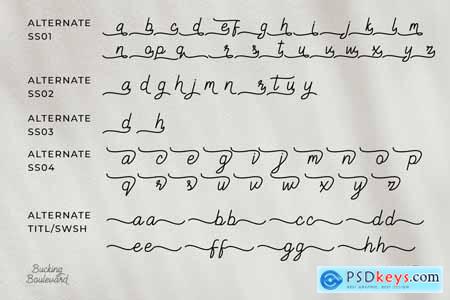 ALTERNATE
SS01
a b c d e f g h i j k l m
n o p q r s t u v w x y z
ALTERNATE
SS02
a d g h j m n r t u y
ALTERNATE
SS03
d h
ALTERNATE
SS04
a c e g i j m n o p
q r s u v w x y z
ALTERNATE
TITL/SWSH
aa bb cc dd
ee ff gg hh
Bucking
Boulevard
PSDkeys.com